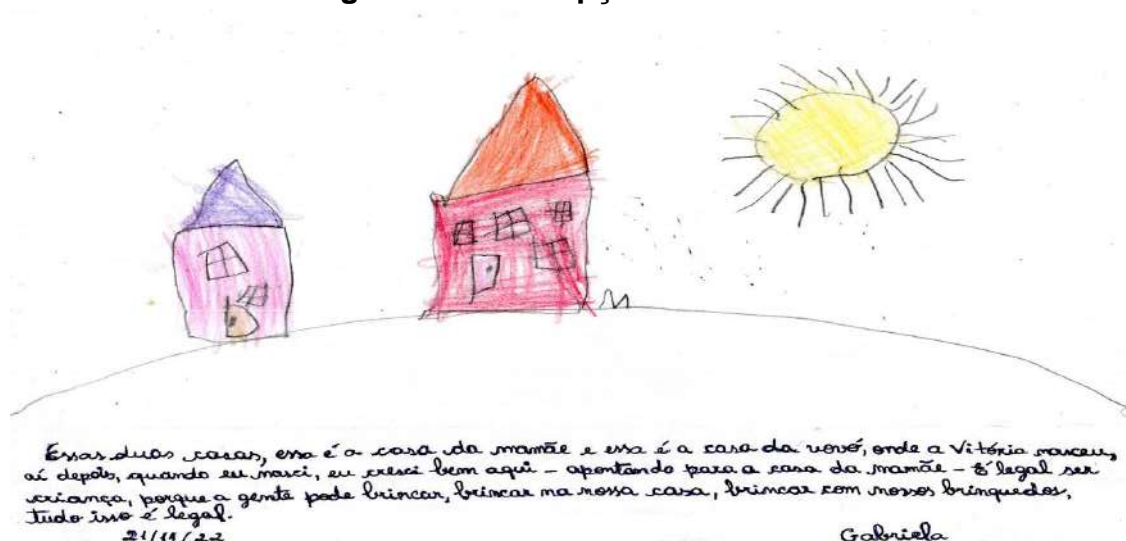 Essas duas casas, essa é a casa da mamãe e essa é a casa da vovó, onde a Vitória nasceu,
aí depois, quando eu nasci, eu cresci bem aqui – apontando para a casa da mamãe – É legal ser
criança, porque a gente pode brincar, brincar na nossa casa, brincar com nossos brinquedos,
tudo isso é legal.
21/11/22 Gabriela